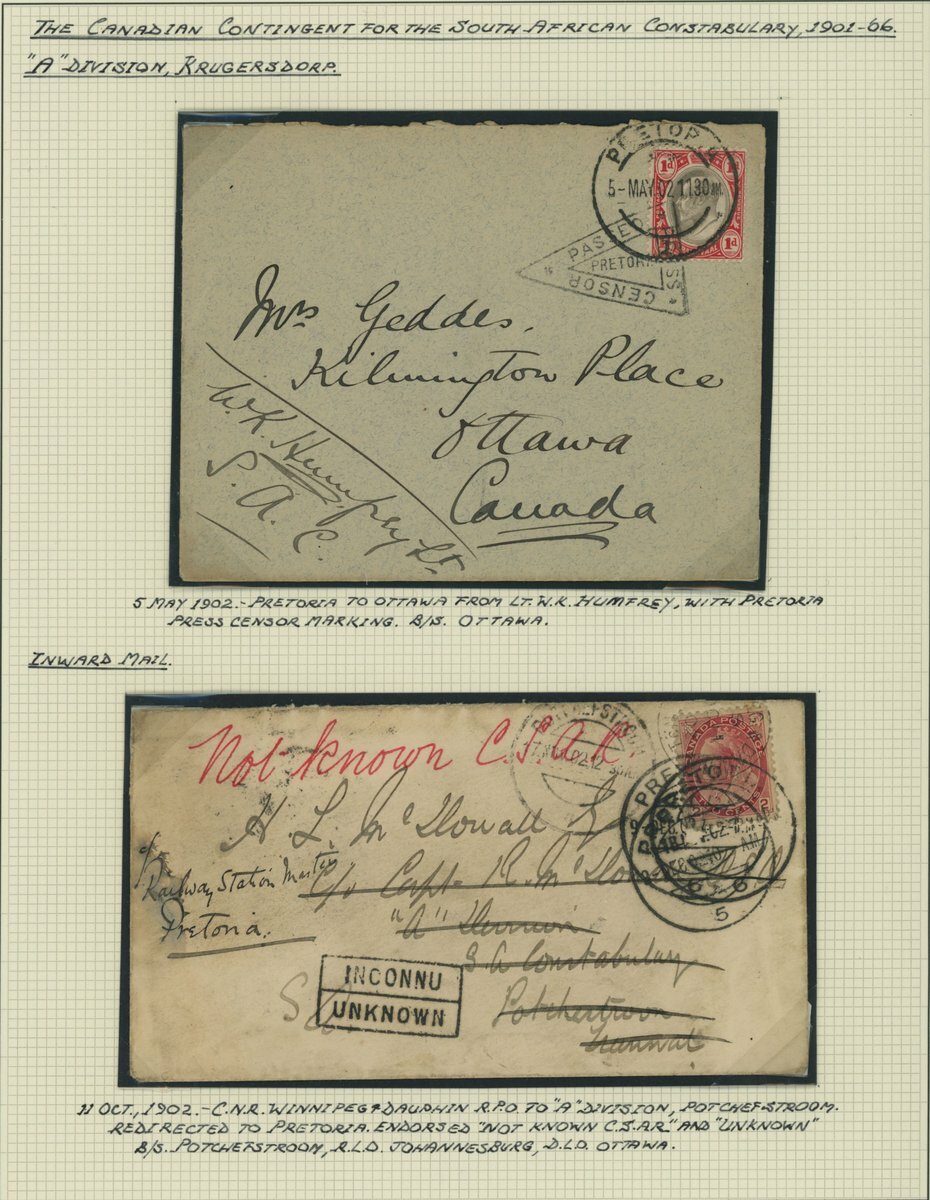 THE CANADIAN CONTINGENT FOR THE SOUTH AFRICAN CONSTABULARY, 1901-'06.
"A" DIVISION, KRUGERSDORP.
PRETORIA
5-MAY.02 11 30 AM.
1d 1d
1d
PASSED PRESS CENSOR
PRETORIA
Mrs Geddes.
Kilmington Place
Ottawa
Canada
W. K. Humfrey Lt.
S. A. C.
5 MAY 1902.- PRETORIA TO OTTAWA FROM LT. W.K. HUMFREY, WITH PRETORIA
PRESS CENSOR MARKING. B/S. OTTAWA.
INWARD MAIL.
Not known C.S.A.R.
CANADA POSTAGE
TWO CENTS
PRETORIA
H. L. McDowall
Railway Station Master
Pretoria.
c/o Capt. R. McDo
"A" Division
S A Constabulary
Potchefstroom
Transvaal
S
INCONNU
UNKNOWN
5
11 OCT., 1902.- C.N.R. WINNIPEG & DAUPHIN R.P.O. TO "A" DIVISION, POTCHEFSTROOM.
REDIRECTED TO PRETORIA. ENDORSED "NOT KNOWN C.S.A.R." AND "UNKNOWN"
B/S. POTCHEFSTROOM, R.L.O. JOHANNESBURG, D.L.O. OTTAWA.